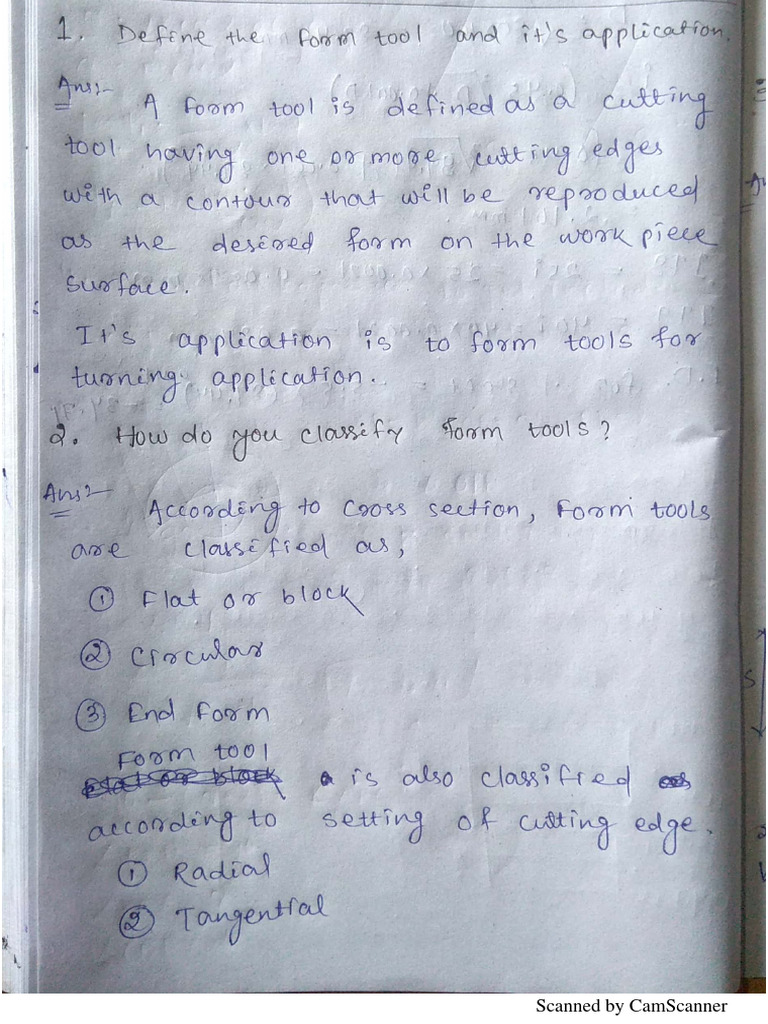 1. Define the form tool and it's application.
Ans:-
A form tool is defined as a cutting
tool having one or more cutting edges
with a contour that will be reproduced
as the desired form on the work piece
surface.
It's application is to form tools for
turning application.
2. How do you classify form tools?
Ans:-
According to cross section, Form tools
are classified as,
① Flat or block
② Circular
③ End form
Form tool
is also classified
according to setting of cutting edge.
① Radial
② Tangential
Scanned by CamScanner